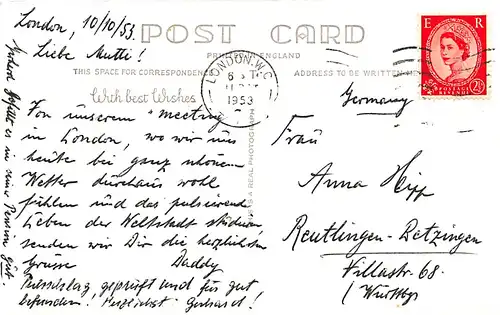 London, 10/10/53.
Liebe Mutti!
POST CARD
PRINTED IN ENGLAND
THIS SPACE FOR CORRESPONDENCE
ADDRESS TO BE WRITTEN
With best Wishes
LONDON. W.C.
1953
E R
POSTAGE
REVENUE
2½
Von unserem "meeting"
in London, wo wir uns
heute bei ganz schönem
Wetter durchaus wohl
fühlen und das pulsierende
Leben der Weltstadt studieren,
senden wir Dir die herzlichsten
Grüsse Daddy
geprüft und für gut
befunden! Herzlichst Gerhard!
gefällt es in seiner Pension gut.
IS A REAL PHOTOGRAPH
Germany
Frau
Anna Hipp
Reutlingen-Betzingen
Villastr 68.
/Württbg